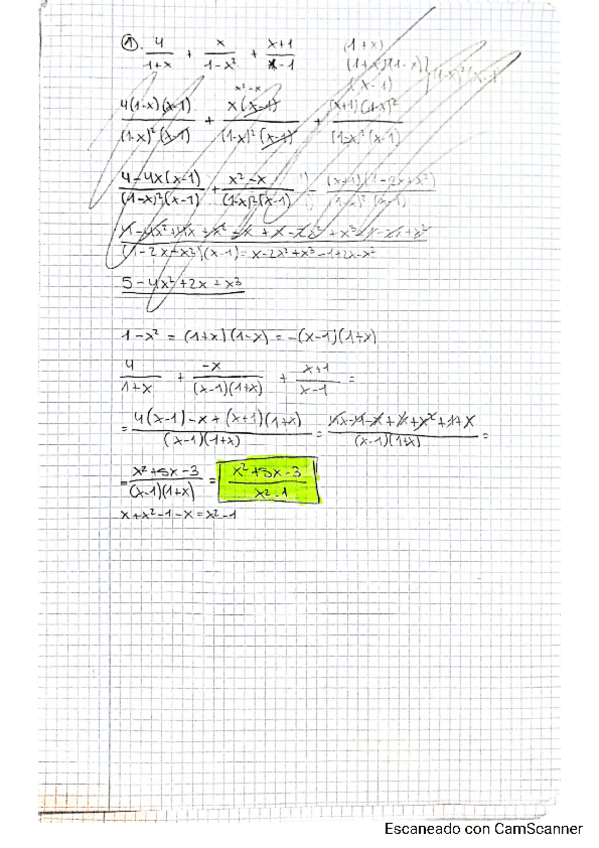 ①. 4/(1+x) + x/(1-x²) + (x+1)/(x-1)
(1+x)
(1+x)(1-x)
(x-1)
(1-x)²(x-1)
x²-x
4(1-x)(x-1)/((1-x)²(x-1)) + x(x-1)/((1-x)²(x-1)) + (x+1)(1-x)²/((1-x)²(x-1))
4-4x(x-1)/((1-x)²(x-1)) + (x²-x)/((1-x)²(x-1)) - (x+1)(1-2x+x²)/((1-x)²(x-1))
(1-2x+x²)(x-1) = x-2x²+x³-1+2x-x²
5-4x²+2x+x³
1-x² = (1+x)(1-x) = -(x-1)(1+x)
4/(1+x) + -x/((x-1)(1+x)) + (x+1)/(x-1) =
= (4(x-1)-x+(x+1)(1+x))/((x-1)(1+x)) = (4x-4-x+x+x²+1+x)/((x-1)(1+x)) =
= (x²+5x-3)/((x-1)(1+x)) = (x²+5x-3)/(x²-1)
x+x²-1-x=x²-1
Escaneado con CamScanner